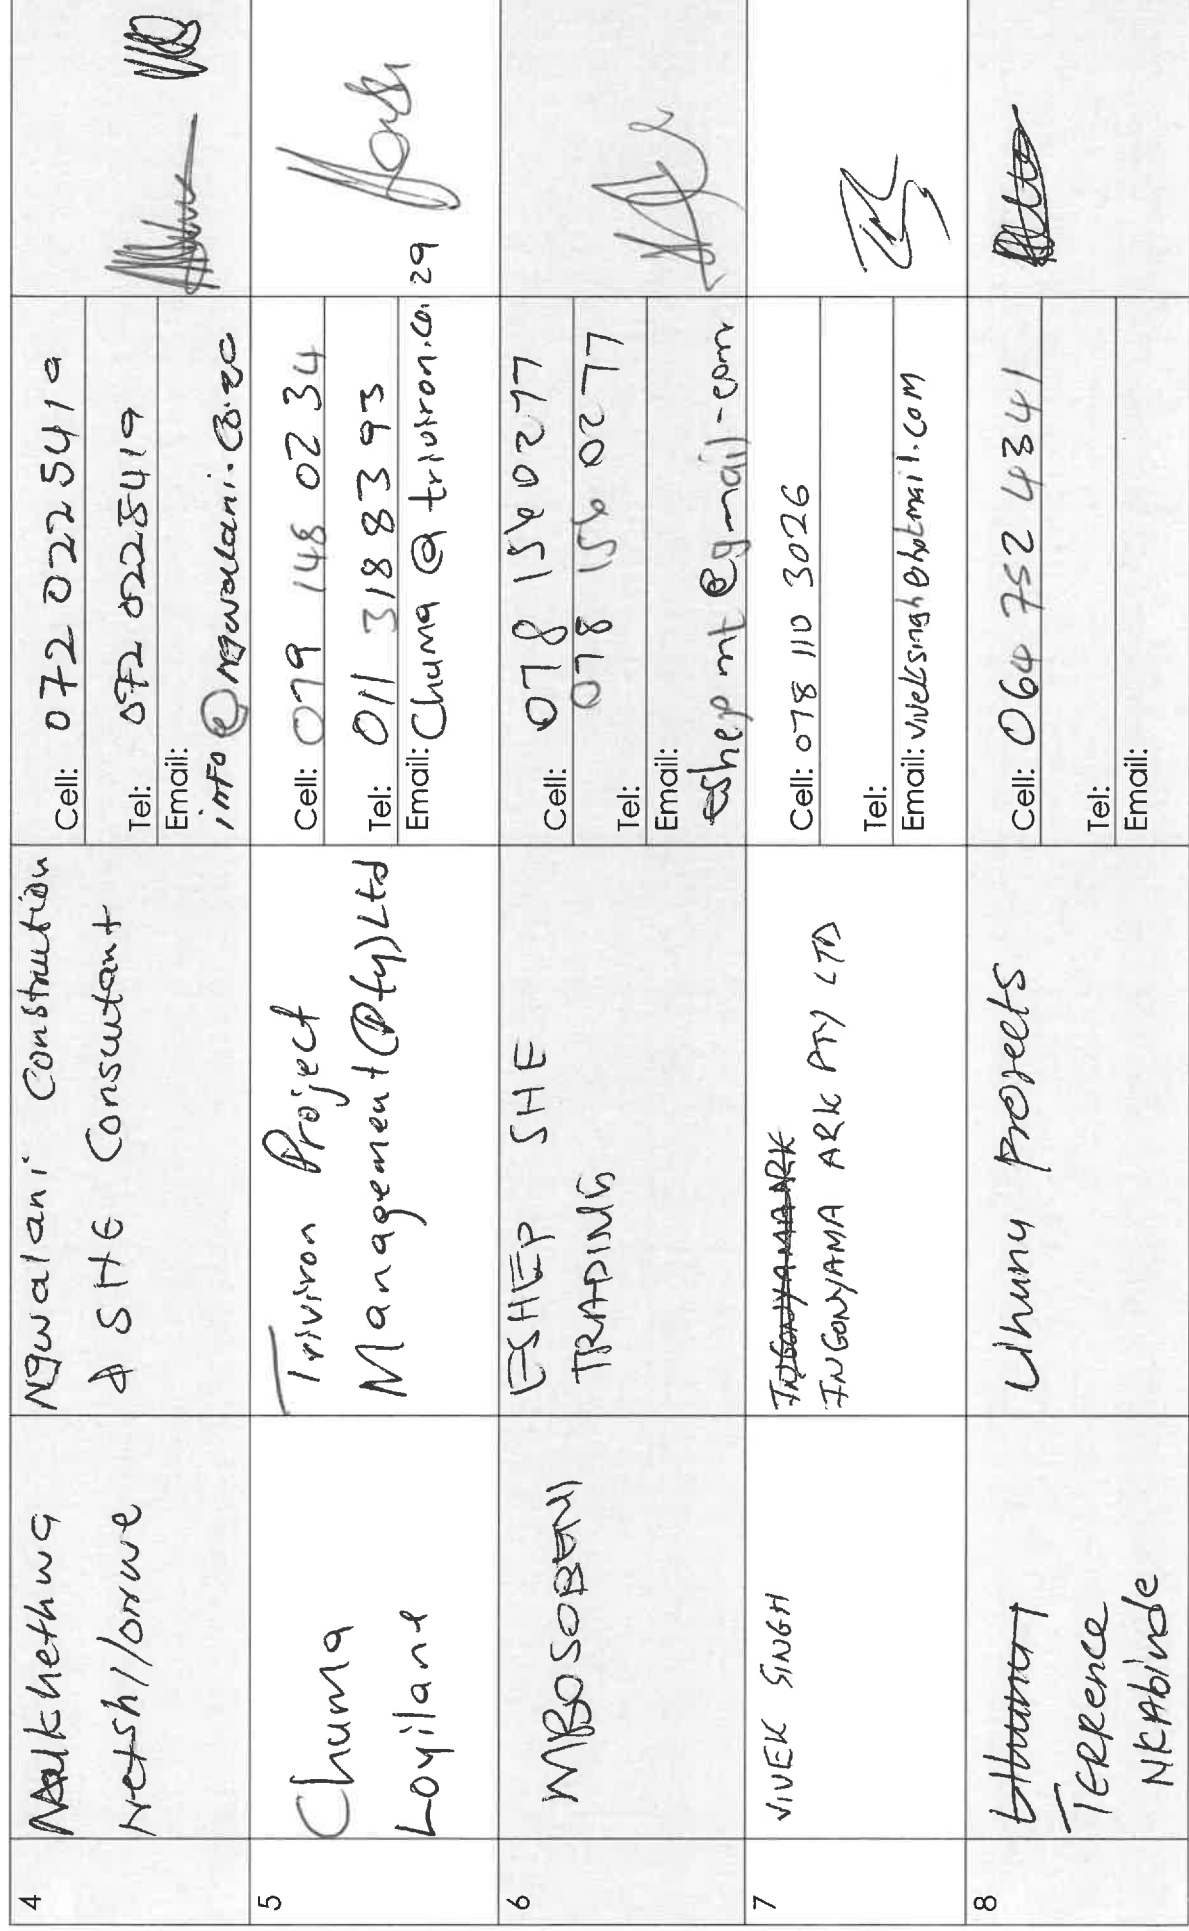 4
Nalkhethwa
Netshilonwe
Ngwalani Construction
& SHE Consutant
Cell: 072 022 5419
Tel: 072 0225419
Email:
info@ngwalani.co.za
5
Chuma
Loyilane
Triviron Project
Management (Pty) Ltd
Cell: 079 148 0234
Tel: 011 318 8393
Email: Chuma @ triviron.co.za
6
M BOSOBENI
ESHEP SHE
TRADING
Cell: 078 156 0277
Tel: 078 156 0277
Email:
eshepmt@gmail.com
7
VIVEK SINGH
INGONYAMA ARK
INGONYAMA ARK PTY LTD
Cell: 078 110 3026
Tel:
Email: viveksingh@hotmail.com
8
Uhuny
TERRence
NKAbinde
Uhuny Projects
Cell: 064 752 4341
Tel:
Email: